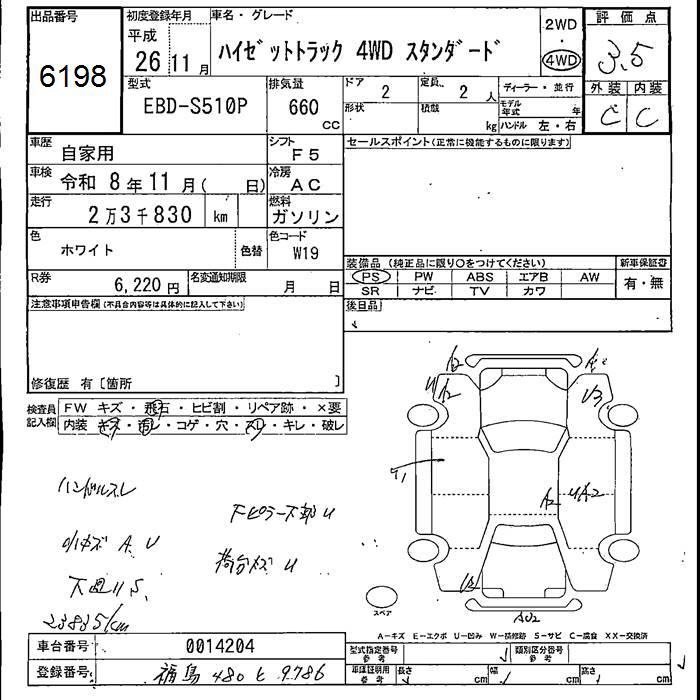 出品番号
6198
初度登録年月
平成
26 11 月
車名・グレード
ハイゼットトラック 4WD スタンダード
2WD
・
4WD
評価点
3.5
外装 内装
C C
型式
EBD-S510P
排気量
660
cc
ドア
2
定員
2 人
形状
積載
kg
ディーラー・並行
モデル年式 年
ハンドル 左・右
車歴
自家用
シフト
F5
車検
令和 8 年 11 月( 日)
冷房
AC
走行
2 万 3 千 830 km
燃料
ガソリン
色
ホワイト
色替
色コード
W19
R券
6,220 円
名変通知期限
月 日
セールスポイント(正常に機能するものに限ります)
装備品 (純正品に限り○をつけてください)
PS PW ABS エアB AW
SR ナビ TV カワ
新車保証書
有・無
後日品
注意事項申告欄(不具合内容等は具体的に記入して下さい)
修復歴 有〔箇所 〕
検査員
記入欄
FW キズ・飛石・ヒビ割・リペア跡・×要
内装 キズ・汚レ・コゲ・穴・スレ・キレ・破レ
ハンドルスレ
小キズ A、U
下廻りS、
23835km
下ピラー下部U
荷台キズU
A2
A
U
A2
U3
A2
UA2
U2
AU2
スペア
A－キズ E－エクボ U－凹み W－補修跡 S－サビ C－腐食 XX－交換済
車台番号
0014204
登録番号
福島 480 ヒ 9786
型式指定番号
参考
類別区分番号
参考
車庫証明用
参考
長さ
cm
幅
cm
高さ
cm